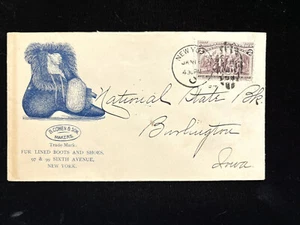 B. COHEN & SON
MAKERS.
Trade Mark.
FUR LINED BOOTS AND SHOES,
97 & 99 SIXTH AVENUE,
NEW YORK.
NEW YO
National State Bk.
Burlington
Iowa